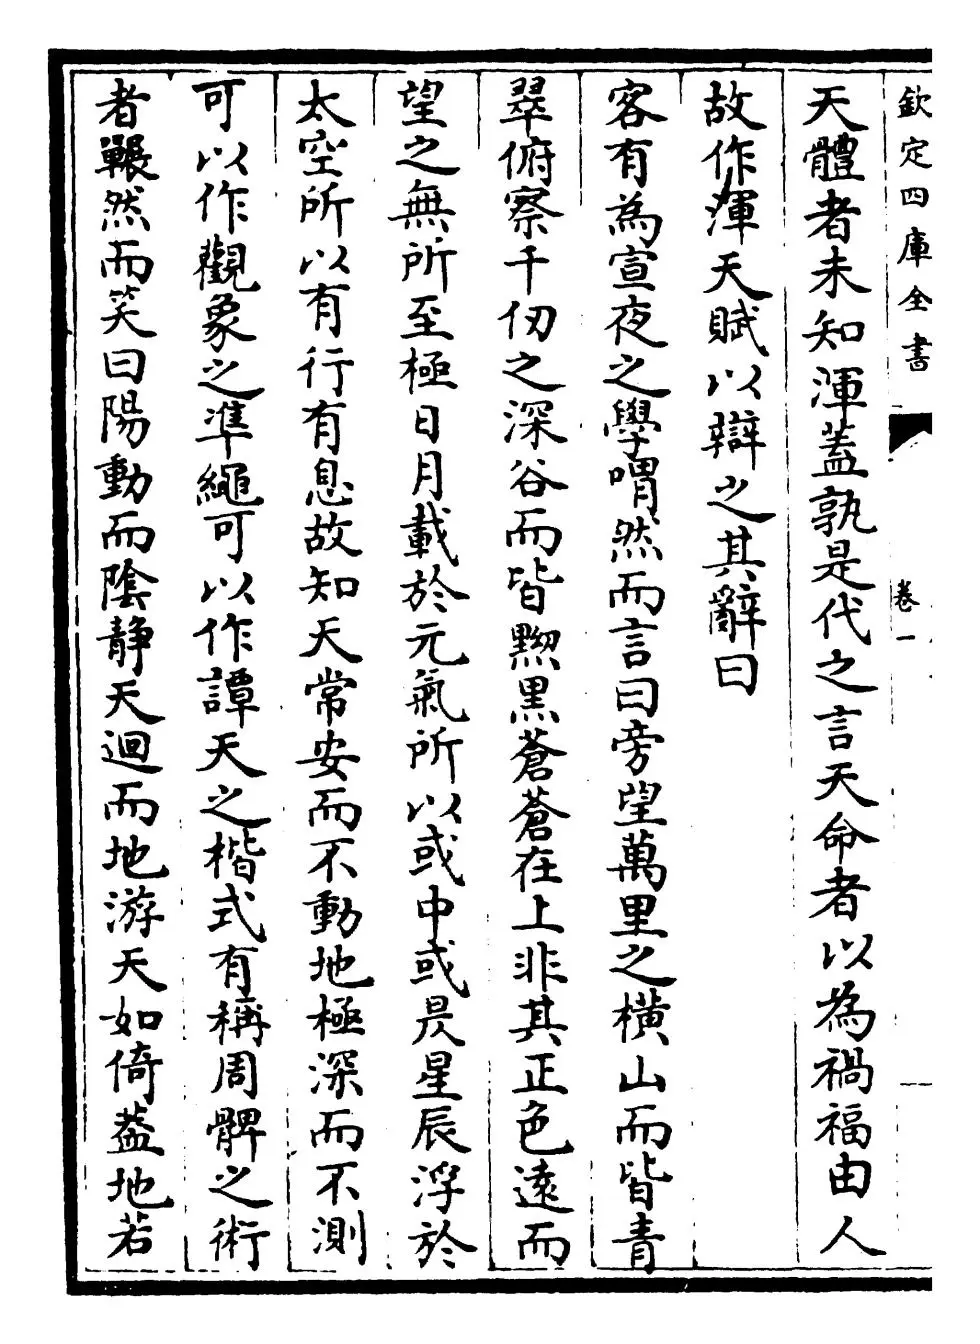 欽定四庫全書
卷一
天體者未知渾蓋孰是代之言天命者以為禍福由人
故作渾天賦以辯之其辭曰
客有為宣夜之學喟然而言曰旁望萬里之橫山而皆青
翠俯察千仞之深谷而皆黝黑蒼蒼在上非其正色遠而
望之無所至極日月載於元氣所以或中或昃星辰浮於
太空所以有行有息故知天常安而不動地極深而不測
可以作觀象之準繩可以作譚天之楷式有稱周髀之術
者囅然而笑曰陽動而陰靜天迴而地游天如倚葢地若